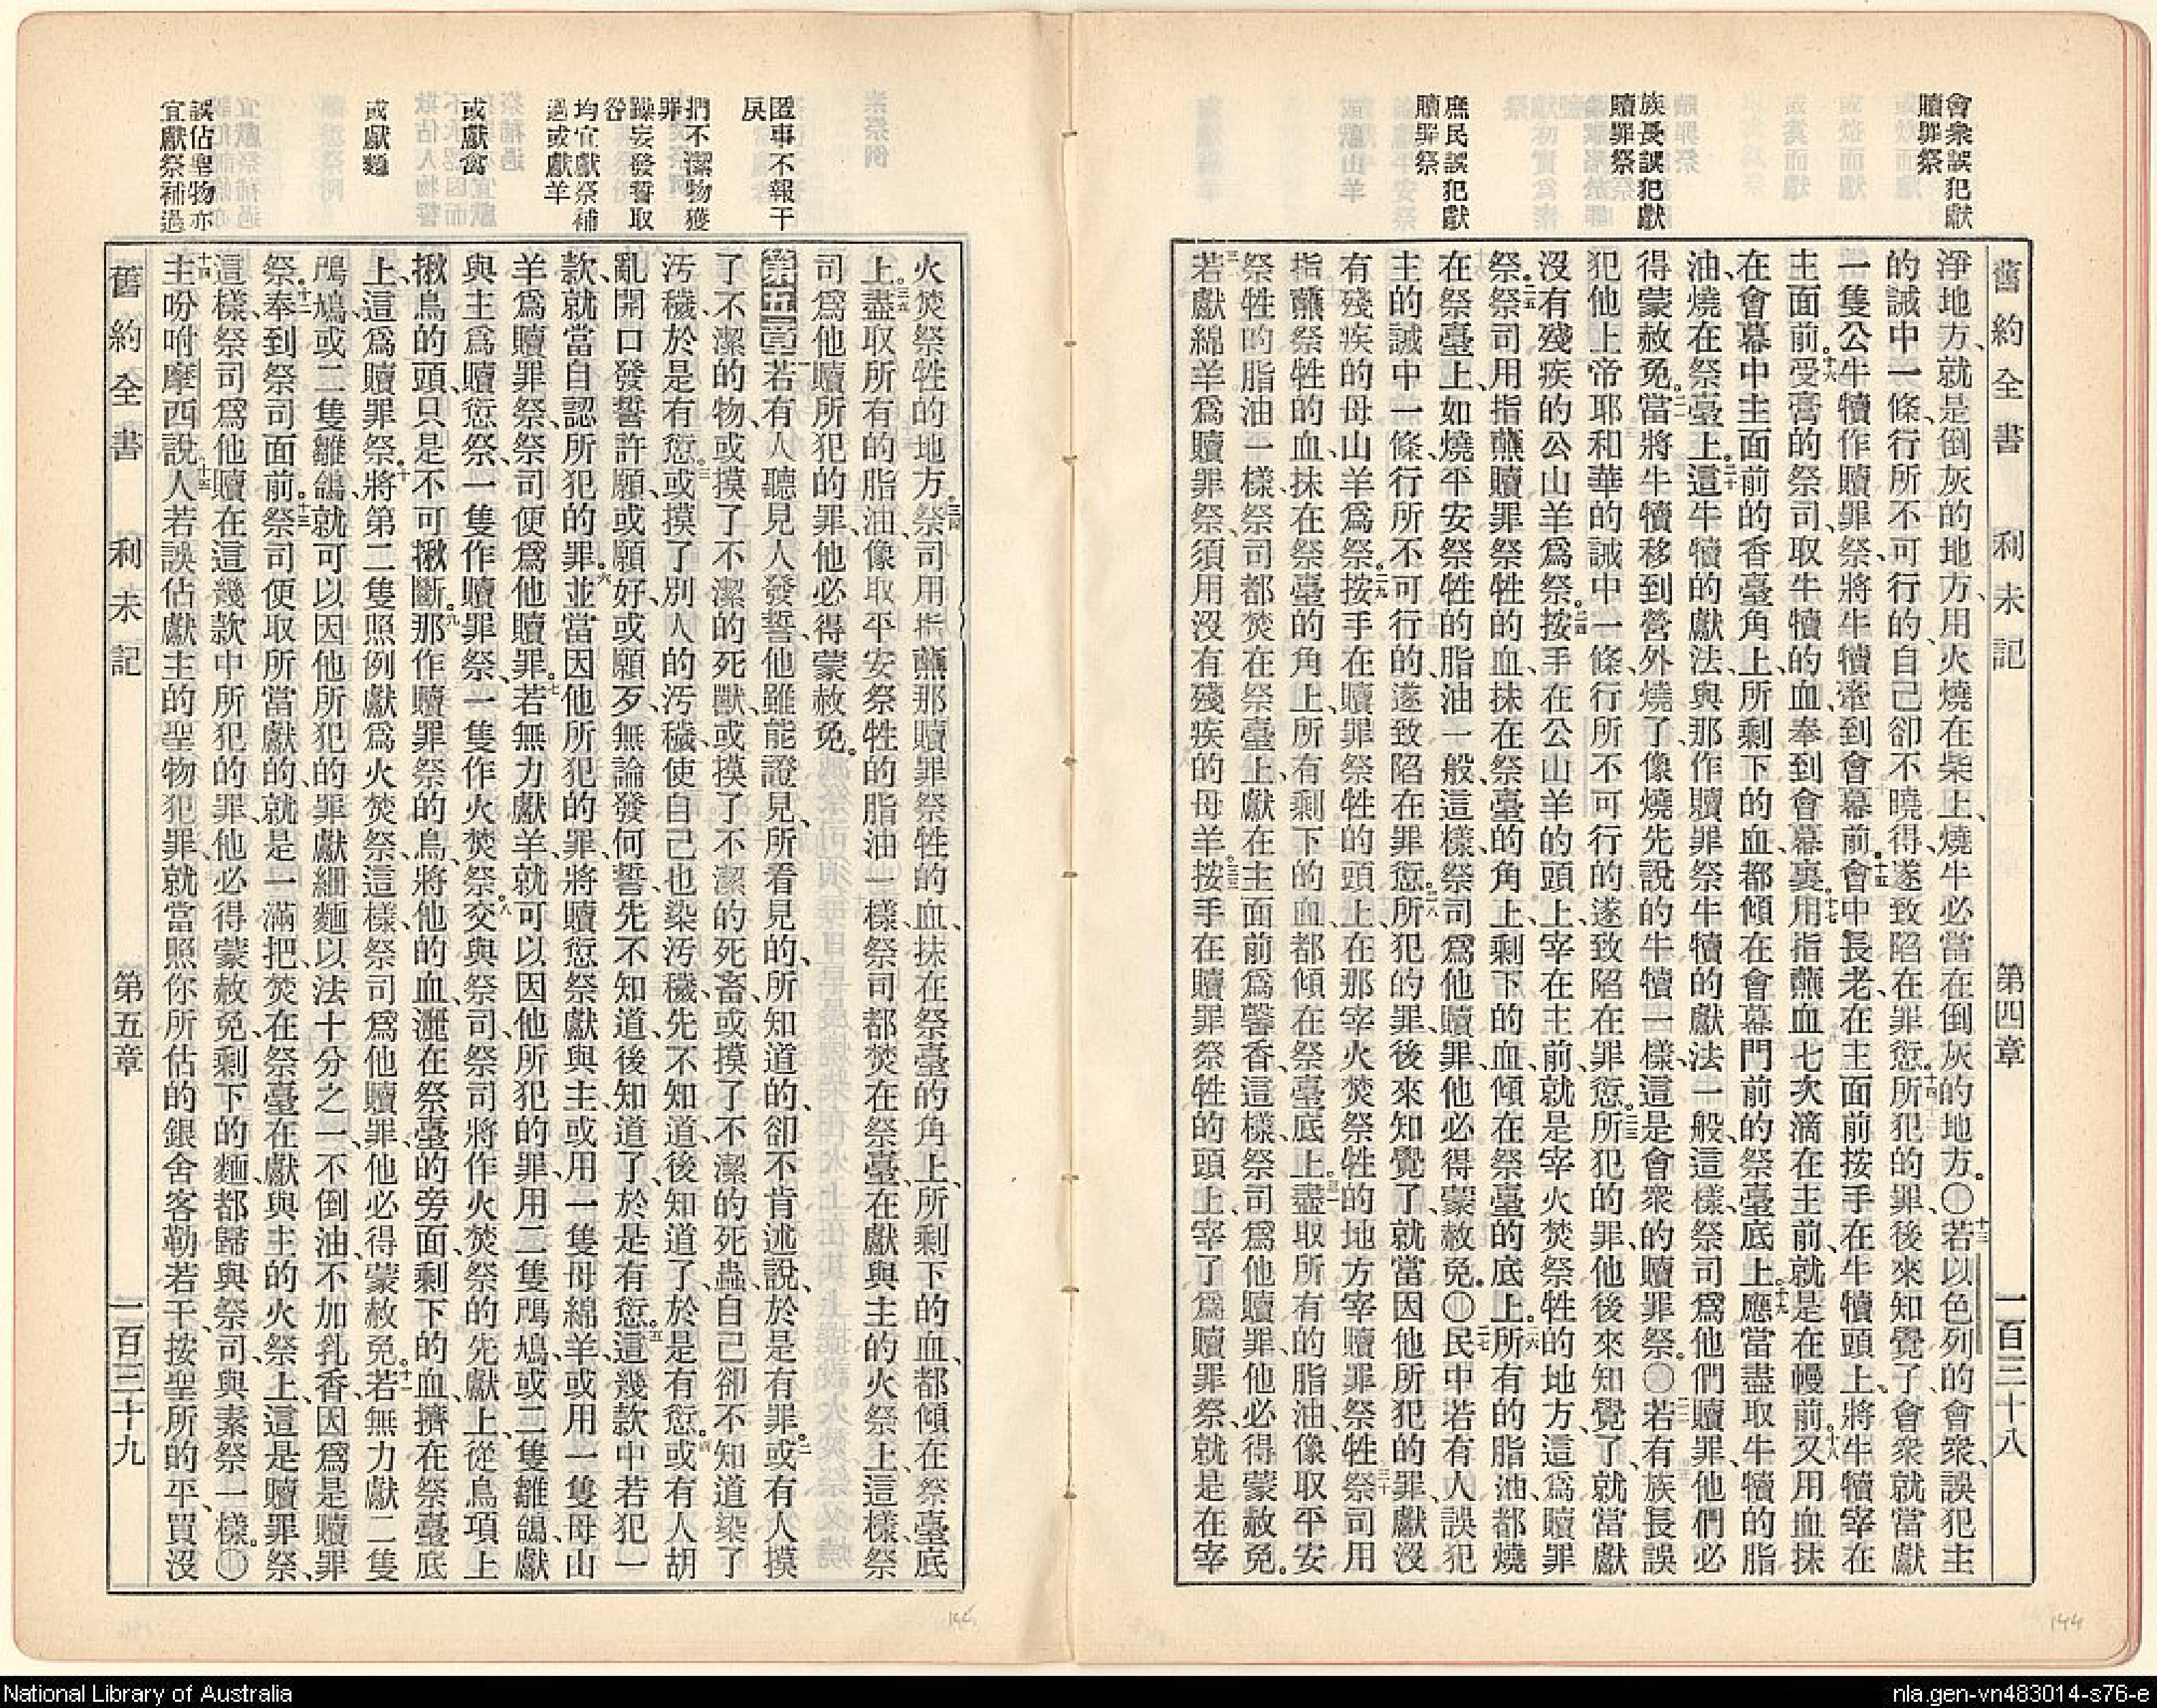 會衆誤犯獻
贖罪祭
族長誤犯獻
贖罪祭
庶民誤犯獻
贖罪祭
舊約全書 利未記 第四章 一百三十八
淨地方、就是倒灰的地方、用火燒在柴上、燒牛必當在倒灰的地方。〇十三若以色列的會衆、誤犯主
的誡中一條、行所不可行的、自己卻不曉得、遂致陷在罪愆。十四所犯的罪、後來知覺了、會衆就當獻
一隻公牛犢作贖罪祭、將牛犢牽到會幕前。十五會中長老、在主面前按手在牛犢頭上、將牛犢宰在
主面前。十六受膏的祭司、取牛犢的血、奉到會幕裏。十七用指蘸血七次滴在主前、就是在幔前。十八又用血抹
在會幕中主面前的香臺角上、所剩下的血、都傾在會幕門前的祭臺底上。十九應當盡取牛犢的脂
油、燒在祭臺上。二十這牛犢的獻法、與那作贖罪祭牛犢的獻法一般、這樣、祭司爲他們贖罪、他們必
得蒙赦免。二一當將牛犢移到營外燒了、像燒先說的牛犢一樣、這是會衆的贖罪祭。〇二二若有族長誤
犯他上帝耶和華的誡中一條、行所不可行的、遂致陷在罪愆。二三所犯的罪、他後來知覺了、就當獻
沒有殘疾的公山羊爲祭。二四按手在公山羊的頭上、宰在主前、就是宰火焚祭牲的地方、這爲贖罪
祭。二五祭司用指蘸贖罪祭牲的血、抹在祭臺的角上、剩下的血、傾在祭臺的底上。二六所有的脂油、都燒
在祭臺上、如燒平安祭牲的脂油一般、這樣、祭司爲他贖罪、他必得蒙赦免。〇二七民中若有人誤犯
主的誡中一條、行所不可行的、遂致陷在罪愆。二八所犯的罪、後來知覺了、就當因他所犯的罪、獻沒
有殘疾的母山羊爲祭。二九按手在贖罪祭牲的頭上、在那宰火焚祭牲的地方、宰贖罪祭牲。三十祭司用
指蘸祭牲的血、抹在祭臺的角上、所有剩下的血、都傾在祭臺底上。三一盡取所有的脂油、像取平安
祭牲的脂油一樣、祭司都焚在祭臺上、獻在主面前爲馨香、這樣、祭司爲他贖罪、他必得蒙赦免。
三二若獻綿羊爲贖罪祭、須用沒有殘疾的母羊。三三按手在贖罪祭牲的頭上、宰了爲贖罪祭、就是在宰
匿事不報干
戾
捫不潔物獲
罪
躁妄發誓取
咎
均宜獻祭補
過或獻羊
或獻禽
或獻麵
誤佔聖物亦
宜獻祭補過
火焚祭牲的地方。三四祭司用指蘸那贖罪祭牲的血、抹在祭臺的角上、所剩下的血、都傾在祭臺底
上。三五盡取所有的脂油、像取平安祭牲的脂油一樣、祭司都焚在祭臺、在獻與主的火祭上、這樣、祭
司爲他贖所犯的罪、他必得蒙赦免。
第五章 一若有人聽見人發誓、他雖能證見、所看見的、所知道的、卻不肯述說、於是有罪。二或有人摸
了不潔的物、或摸了不潔的死獸、或摸了不潔的死畜、或摸了不潔的死蟲、自己卻不知道、染了
汚穢、於是有愆。三或摸了別人的汚穢、使自己也染汚穢、先不知道、後知道了、於是有愆。四或有人胡
亂開口發誓許願、或願好、或願歹、無論發何誓、先不知道、後知道了、於是有愆。五這幾款中若犯一
款、就當自認所犯的罪。六並當因他所犯的罪、將贖愆祭獻與主、或用一隻母綿羊、或用一隻母山
羊、爲贖罪祭、祭司便爲他贖罪。七若無力獻羊、就可以因他所犯的罪、用二隻鳲鳩、或二隻雛鴿、獻
與主爲贖愆祭、一隻作贖罪祭、一隻作火焚祭。八交與祭司、祭司將作火焚祭的先獻上、從鳥項上
揪鳥的頭、只是不可揪斷。九那作贖罪祭的鳥、將他的血、灑在祭臺的旁面、剩下的血、擠在祭臺底
上、這爲贖罪祭。十將第二隻照例獻爲火焚祭、這樣、祭司爲他贖罪、他必得蒙赦免。十一若無力獻二隻
鳲鳩、或二隻雛鴿、就可以因他所犯的罪、獻細麵以法十分之一、不倒油、不加乳香、因爲是贖罪
祭。十二奉到祭司面前。十三祭司便取所當獻的、就是一滿把、焚在祭臺、在獻與主的火祭上、這是贖罪祭、
這樣、祭司爲他贖在這幾款中所犯的罪、他必得蒙赦免、剩下的麵、都歸與祭司、與素祭一樣。〇
十四主吩咐摩西說、十五人若誤佔獻主的聖物犯罪、就當照你所估的銀舍客勒若干、按聖所的平、買沒
舊約全書 利未記 第五章 一百三十九
144
National Library of Australia
nla.gen-vn483014-s76-e